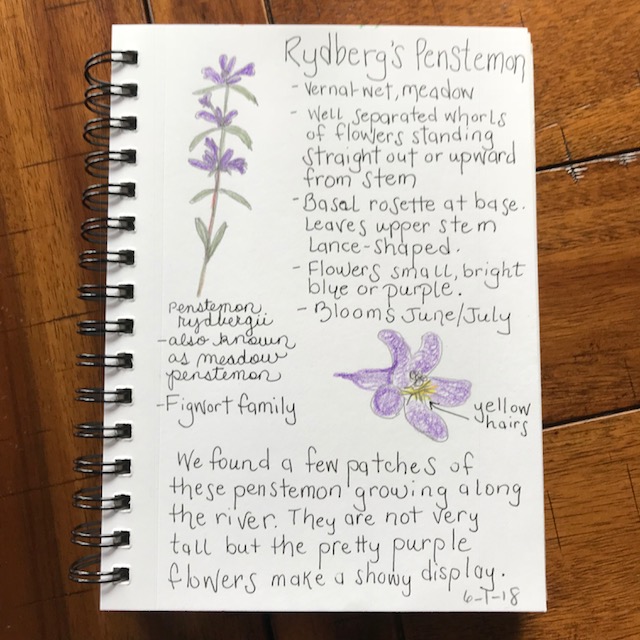 Rydberg's Penstemon
- Vernal-wet, meadow
- Well separated whorls
of flowers standing
straight out or upward
from stem
- Basal rosette at base.
Leaves upper stem
Lance-shaped.
- Flowers small, bright
blue or purple.
- Blooms June/July
penstemon
rydbergii
- also known
as meadow
penstemon
- Figwort family
yellow
hairs
We found a few patches of
these penstemon growing along
the river. They are not very
tall but the pretty purple
flowers make a showy display.